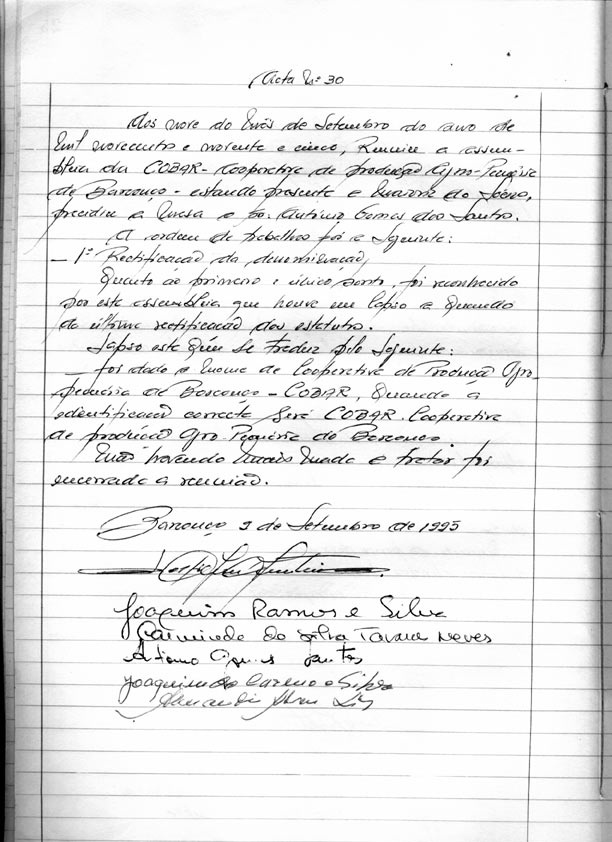 Acta Nº 30
Aos nove do mês de Setembro do ano de
mil novecentos e noventa e cinco, Reuniu a assem-
bleia da COBAR - Cooperativa de produção Agro-Pecuária
de Barcouço - estando presente a maioria dos Sócios,
presidiu a mesa o sr. António Gomes dos Santos.
A ordem de trabalhos foi a Seguinte:
- 1º Rectificação da denominação,
Quanto ao primeiro e único ponto, foi reconhecido
por esta assembleia que houve um lapso a quando
da última rectificação dos estatutos.
Lapso este que se traduz pelo Seguinte:
- foi dado o nome de Cooperativa de Produção Agro-
pecuária de Barcouço - COBAR, Quando a
identificação correcta Será COBAR. Cooperativa
de produção Agro-Pecuária de Barcouço.
Não havendo mais nada a tratar foi
encerrada a reunião.
Barcouço 9 de Setembro de 1995
Joaquim Ramos e Silva
da Silva Tavares Neves
António Gomes Santos
Joaquim do Carmo e Silva